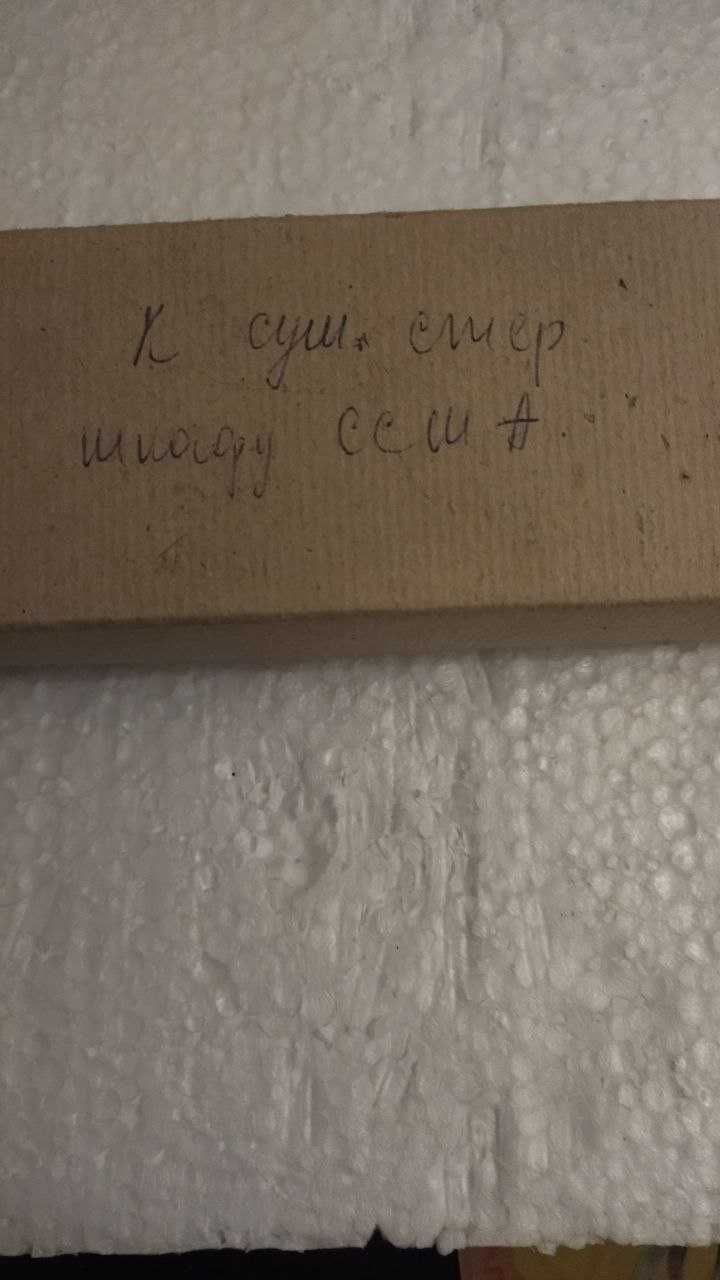 К суш. стер.
шкафу ССША